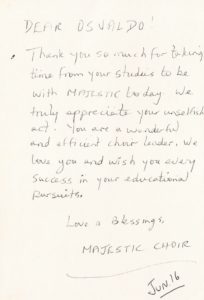 DEAR OSVALDO!
Thank you so much for taking
time from your studies to be
with MAJESTIC today. We
truly appreciate your unselfish
act. You are a wonderful
and efficient choir leader. We
love you and wish you every
success in your educational
pursuits.
Love & Blessings,
MAJESTIC CHOIR
JUN.16